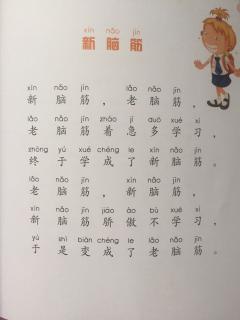 xīn nǎo jīn
新脑筋
xīn nǎo jīn lǎo nǎo jīn
新脑筋，老脑筋，
lǎo nǎo jīn zháo jí duō xué xí
老脑筋着急多学习，
zhōng yú xué chéng le xīn nǎo jīn
终于学成了新脑筋。
lǎo nǎo jīn xīn nǎo jīn
老脑筋，新脑筋，
xīn nǎo jīn jiāo ào bù xué xí
新脑筋骄傲不学习，
yú shì biàn chéng le lǎo nǎo jīn
于是变成了老脑筋。